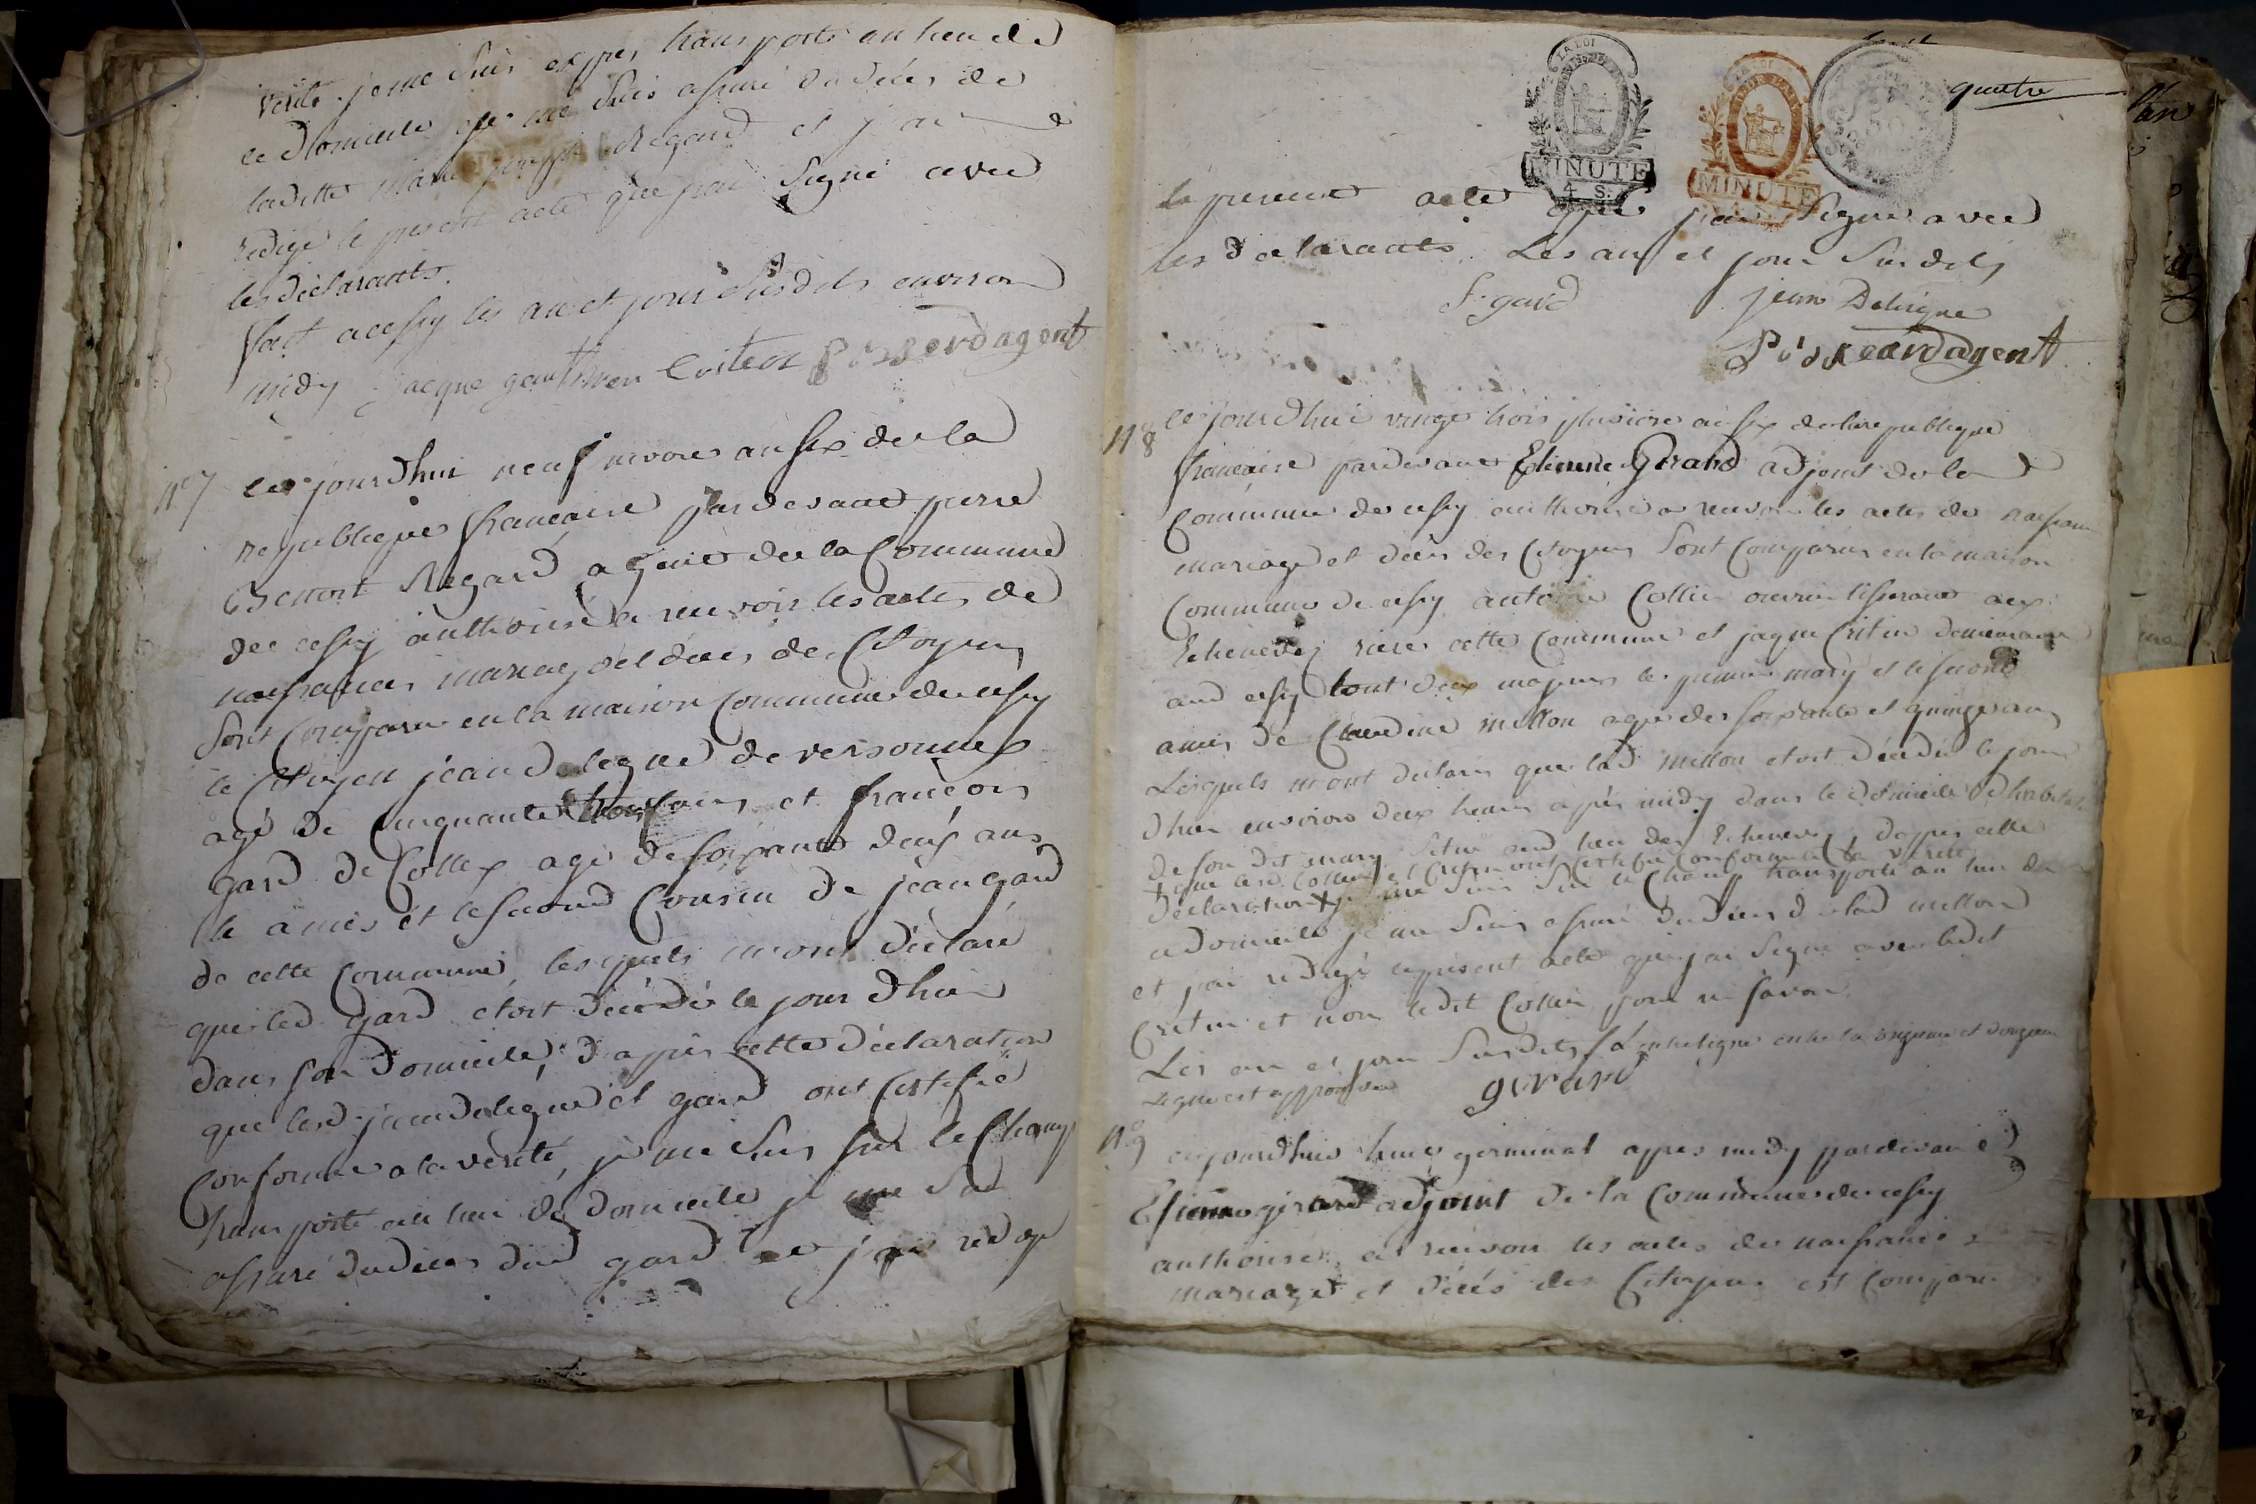 verité je me suis expres transporté au lieu de
ce domicile je me suis assuré du décès de
laditte marie Regard et j'ai
redigé le present acte que j'ai signé avec
les déclarants.
fait a cessy les an et jour susdits environ
midy jacque Coiteux P b Regardagent
n° 7 cejourdhui neuf nivose an six de la
republique francaise pardevant pierre
Benoit Regard agent de la Commune
de cessy authorisé a recevoir les actes de
naissances mariages et décès des Citoyens
sont comparu en la maison commune de cessy
le Citoyen jean delegue de versonnex
agé de cinquante trois ans et françois
gard de Collex agé de soixante deux ans
le amis et le second Cousin de jean gard
de cette commune, lesquels m'ont déclaré
que led. gard étoit décédé le jour d'hui
dans son domicile, d'apprès cette déclaration
que lesd. jean delegue et gard ont certifié
conforme a la verité, je me suis sur le champ
transporté au lieu de domicile je me suis
assuré du décès dud gard et j'ai redigé
quatre
LA LOI
MINUTE
4. S.
MINUTE
le present acte que j'ai signé avec
les déclarants. Les an et jour susdits
f. gard jean Deleigue
P b Regardagent
n° 8 cejourdhui vingt trois pluviose an six de la republique
francaise pardevant Etienne Girard adjoint de la
Commune de cessy authorisé a recevoir les actes de naissance
mariage et décès des Citoyens sont comparus en la maison
Commune de cessy antoine Collin ouvrier tisserand aux
Echenevex riere cette commune et jaque Critin demeurant
aud cessy tout deux majeurs le premier mary et le second
amis de Claudine millon agée de soixante et quinze ans
Lesquels m'ont déclaré que lad millon etoit décédée le jour
d'hier environ deux heures après midy dans le domicile d'habitation
de son dit mary situé aud lieu des Echenevex, d'apprès cette
+ que lesd. Collin et Critin ont certifié conforme à la verité
déclaration + je me suis sur le champ transporté au lieu de
ce domicile je me suis assuré du décès de lad millon
et j'ai redigé le present acte que j'ai signé avec ledit
Critin et non ledit Collin pour ne savoir.
Les an et jour susdits, l'entreligne entre la onzieme et douzieme
Ligne est approuvée girard
n° 9 cejourdhui germinal appres midy pardevant
Etienne girard adjoint de la Commune de cessy
authorisé a recevoir les actes de naissances
mariages et décès des Citoyens est comparu